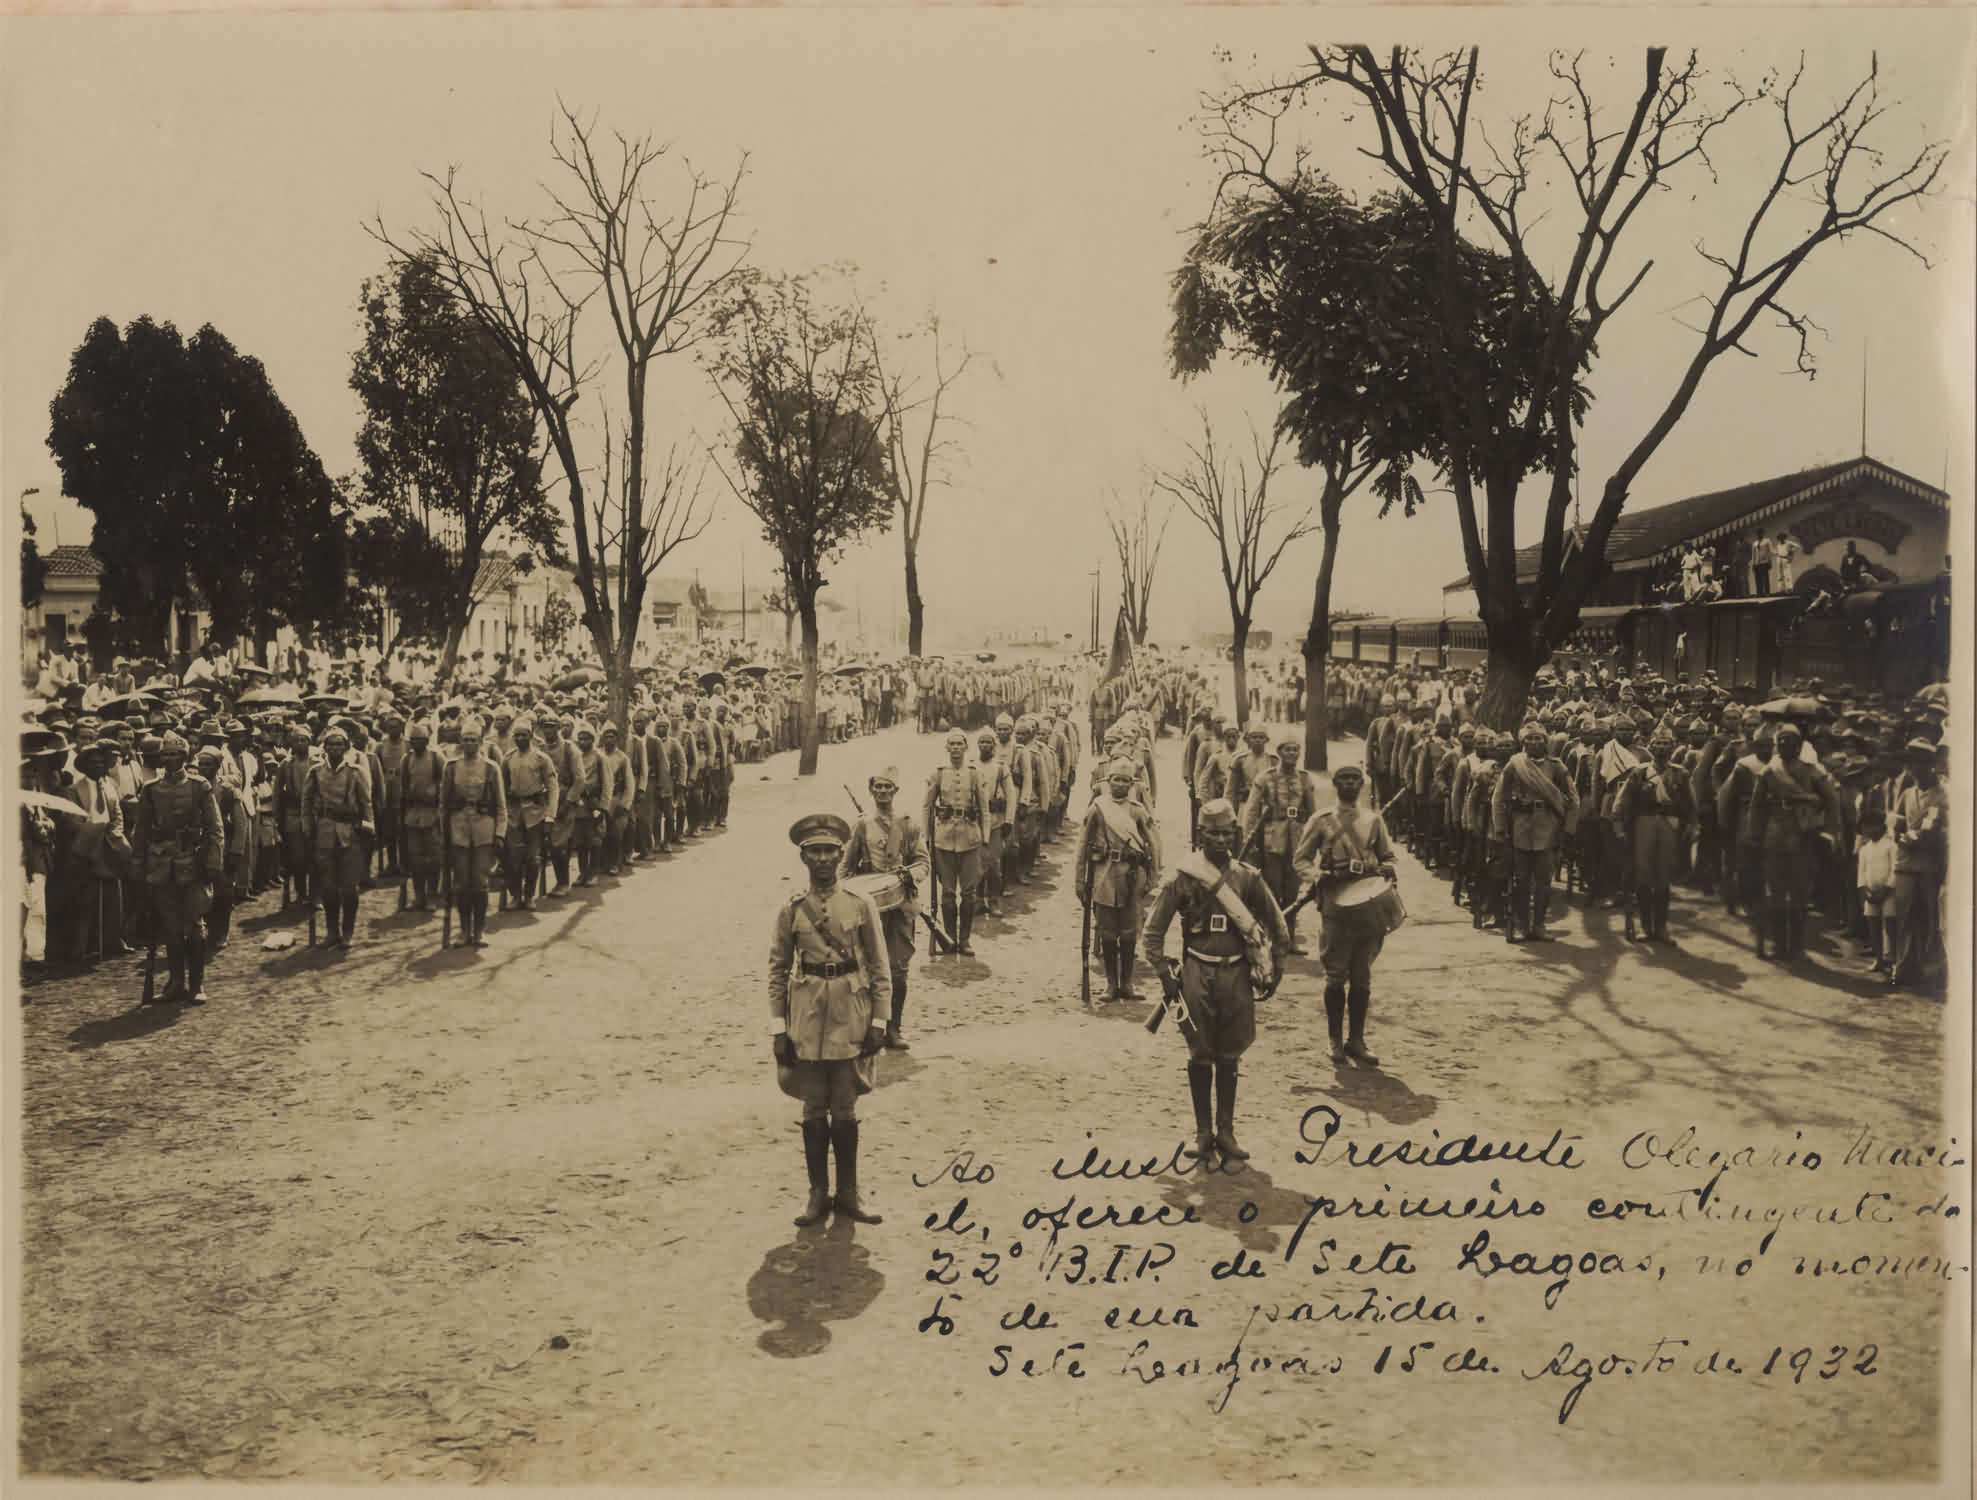 SETE LAGOAS
Ao ilustre Presidente Olegario Maci-
el, oferece o primeiro contingente do
22º B.I.P. de Sete Lagoas, no momen-
to de sua partida.
Sete Lagoas 15 de Agosto de 1932